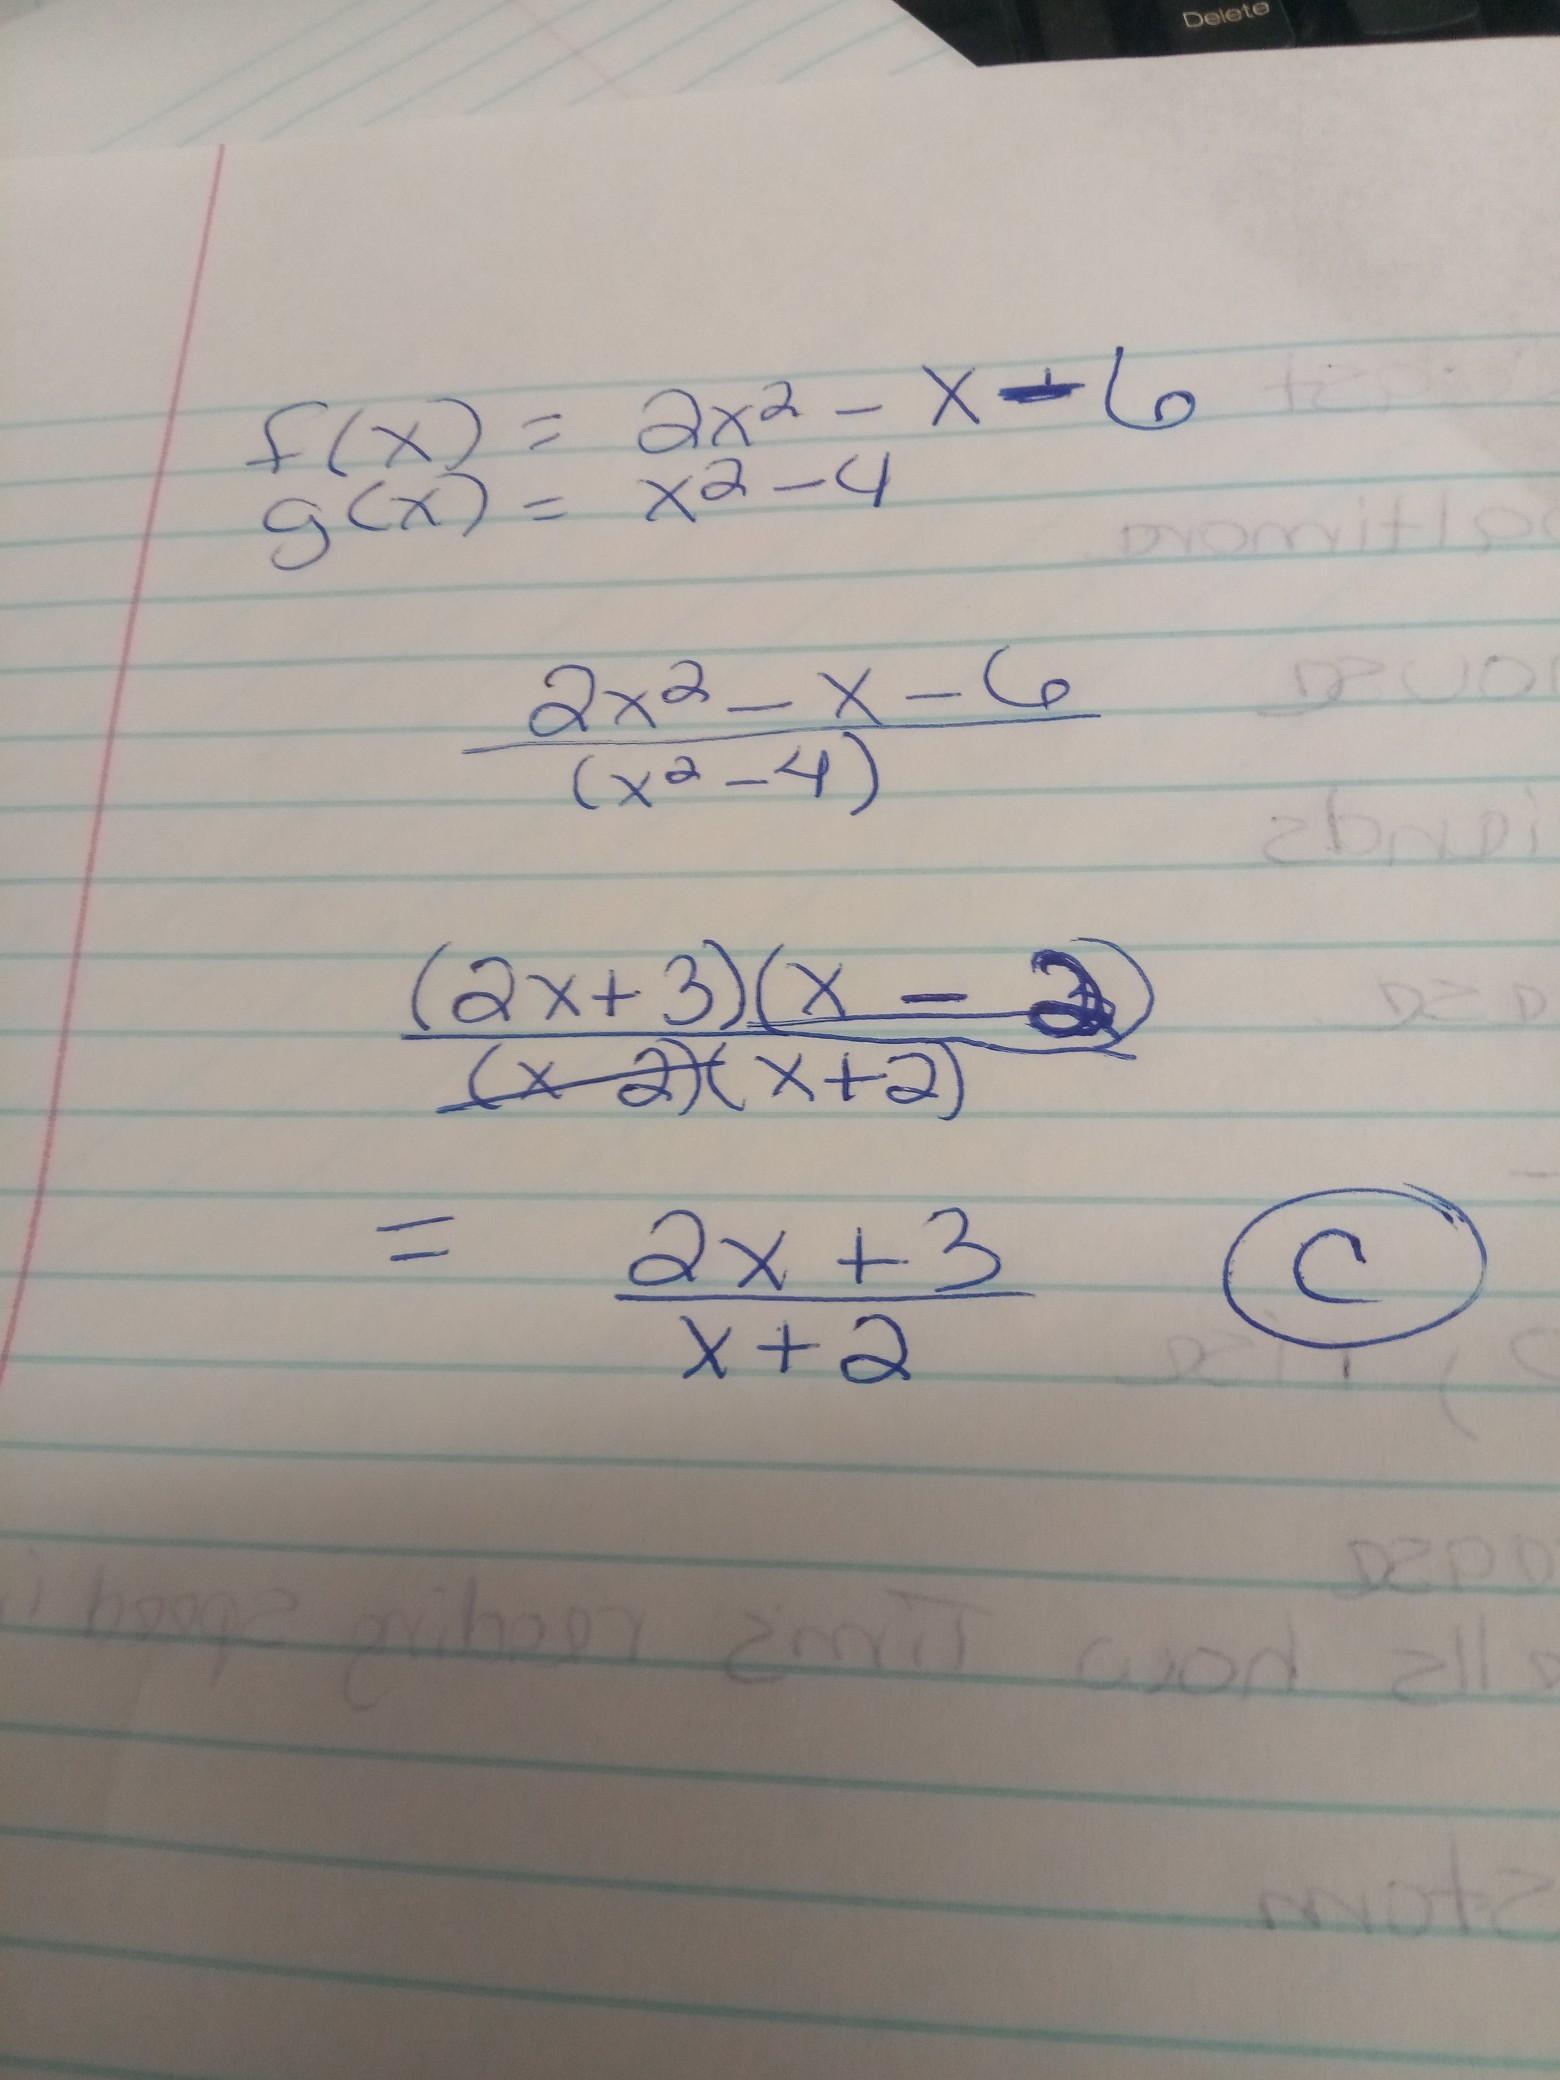 Delete
f(x) = 2x² - x - 6
g(x) = x² - 4
2x² - x - 6
(x² - 4)
(2x + 3)(x - 2)
(x 2)(x + 2)
= 2x + 3
x + 2
C